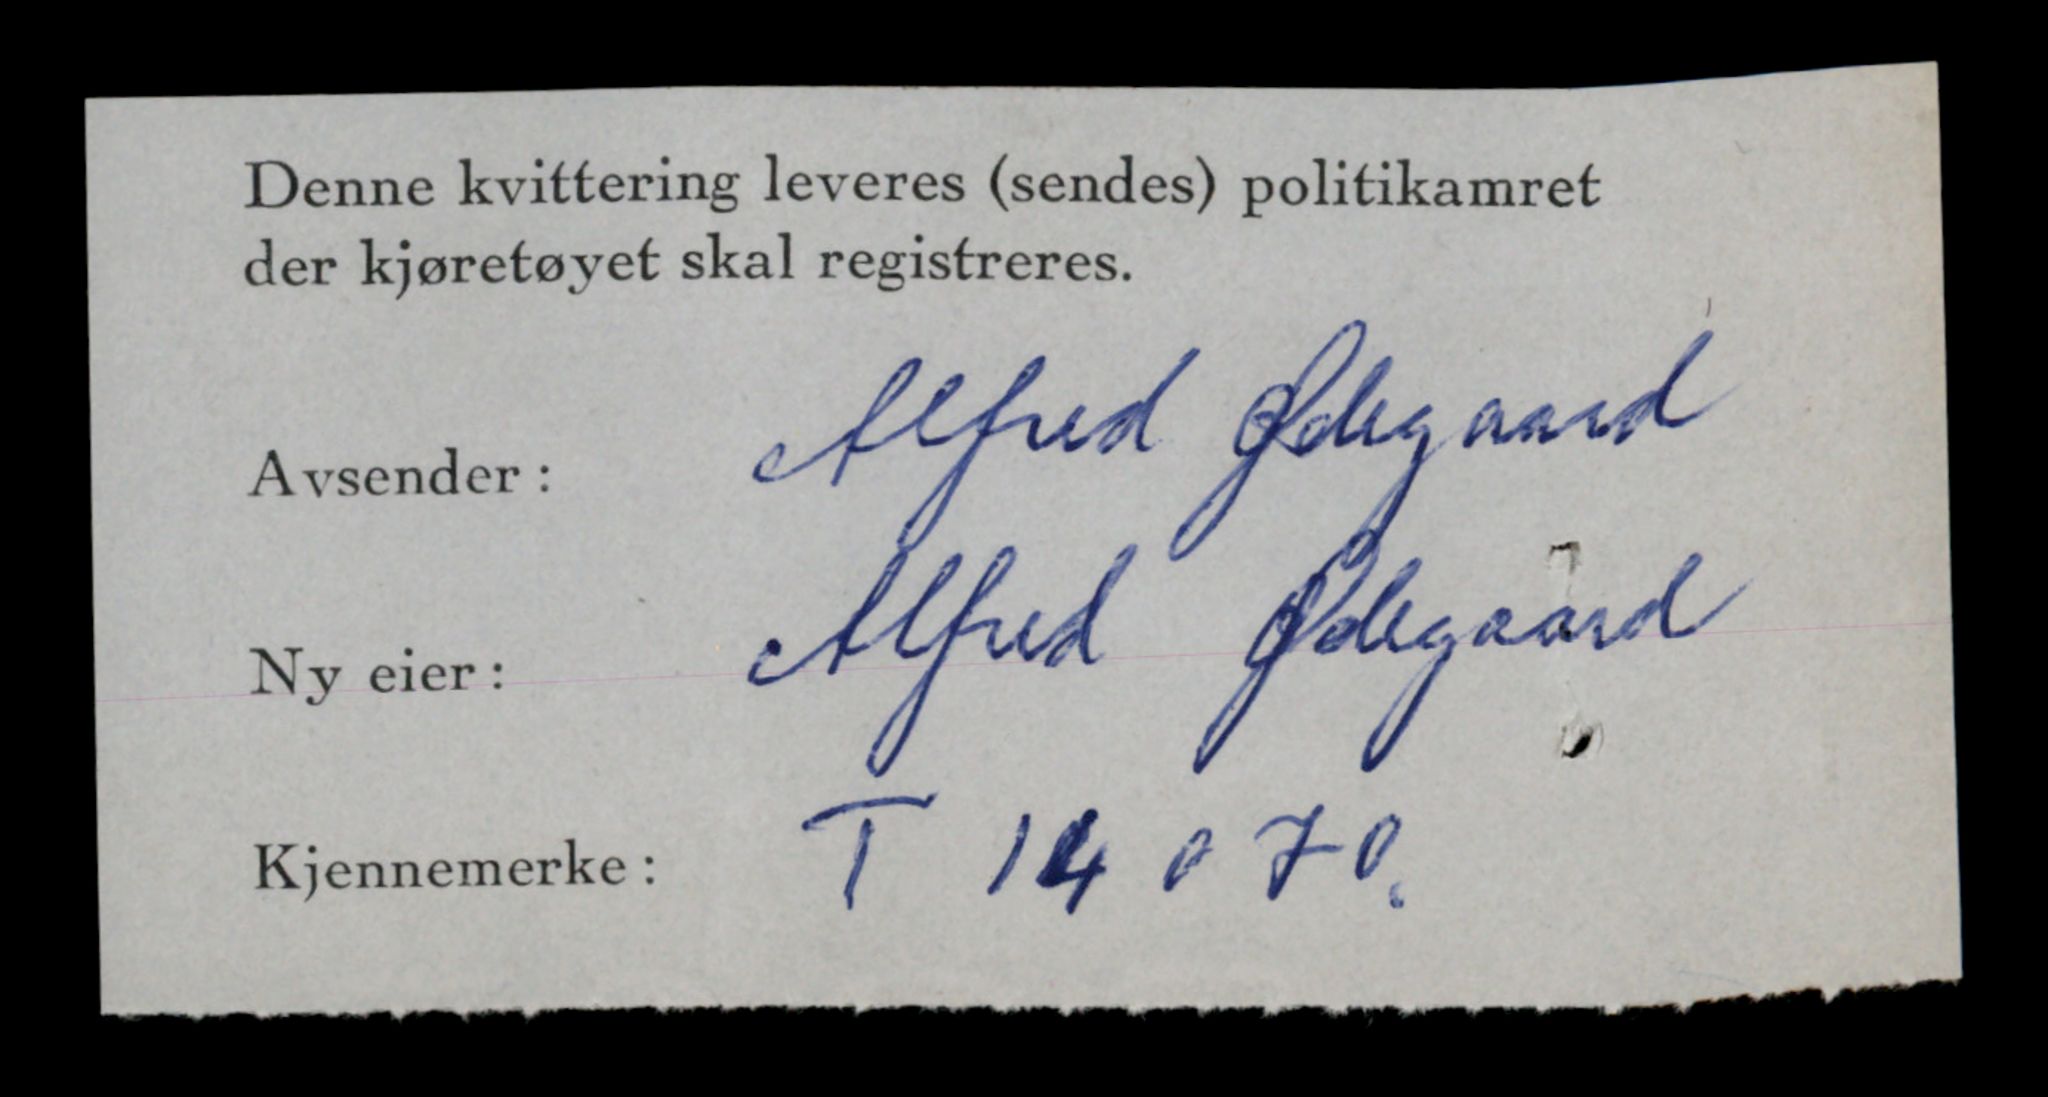 Denne kvittering leveres (sendes) politikamret
der kjøretøyet skal registreres.
Avsender: Alfred Ødegaard
Ny eier: Alfred Ødegaard
Kjennemerke: T 14070.